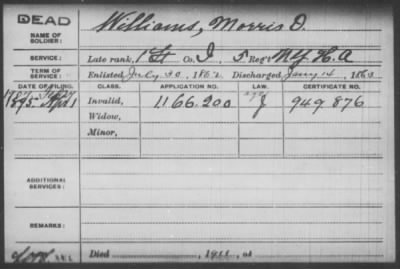 DEAD
NAME OF SOLDIER: Williams, Morris D.
SERVICE: Late rank, 1 Lt Co. I, 5 Reg't N.Y. H. A
TERM OF SERVICE: Enlisted July 30, 1862 Discharged Jany 14, 1863
DATE OF FILING. CLASS. APPLICATION NO. LAW. CERTIFICATE NO.
1895 Invalid, 1166.200 J 949 876
Widow,
Minor,
ADDITIONAL SERVICES:
REMARKS:
Died , 1911, at